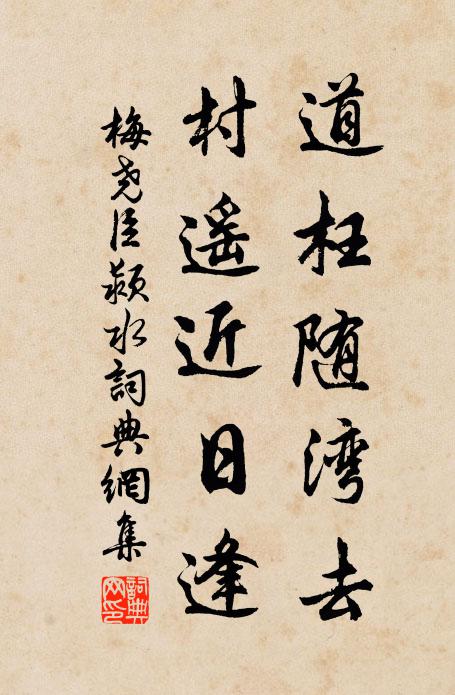 道枉随湾去
村遥近日逢
梅尧臣颍水詞典網集
詞典网印